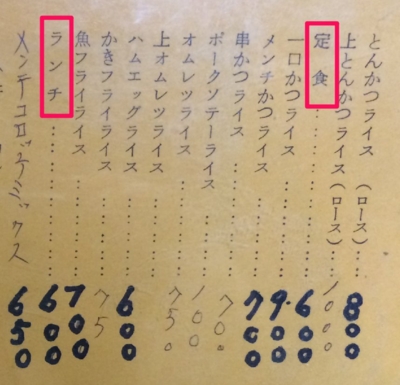 とんかつライス (ロース)……800
上とんかつライス(ロース)……1000
定食……600
一口かつライス……900
メンチかつライス……700
串かつライス……700
ポークソテーライス……
オムレツライス……750
上オムレツライス……
ハムエッグライス……600
かきフライライス……75
魚フライライス……700
ランチ……600
メンチコロッケミックス 650